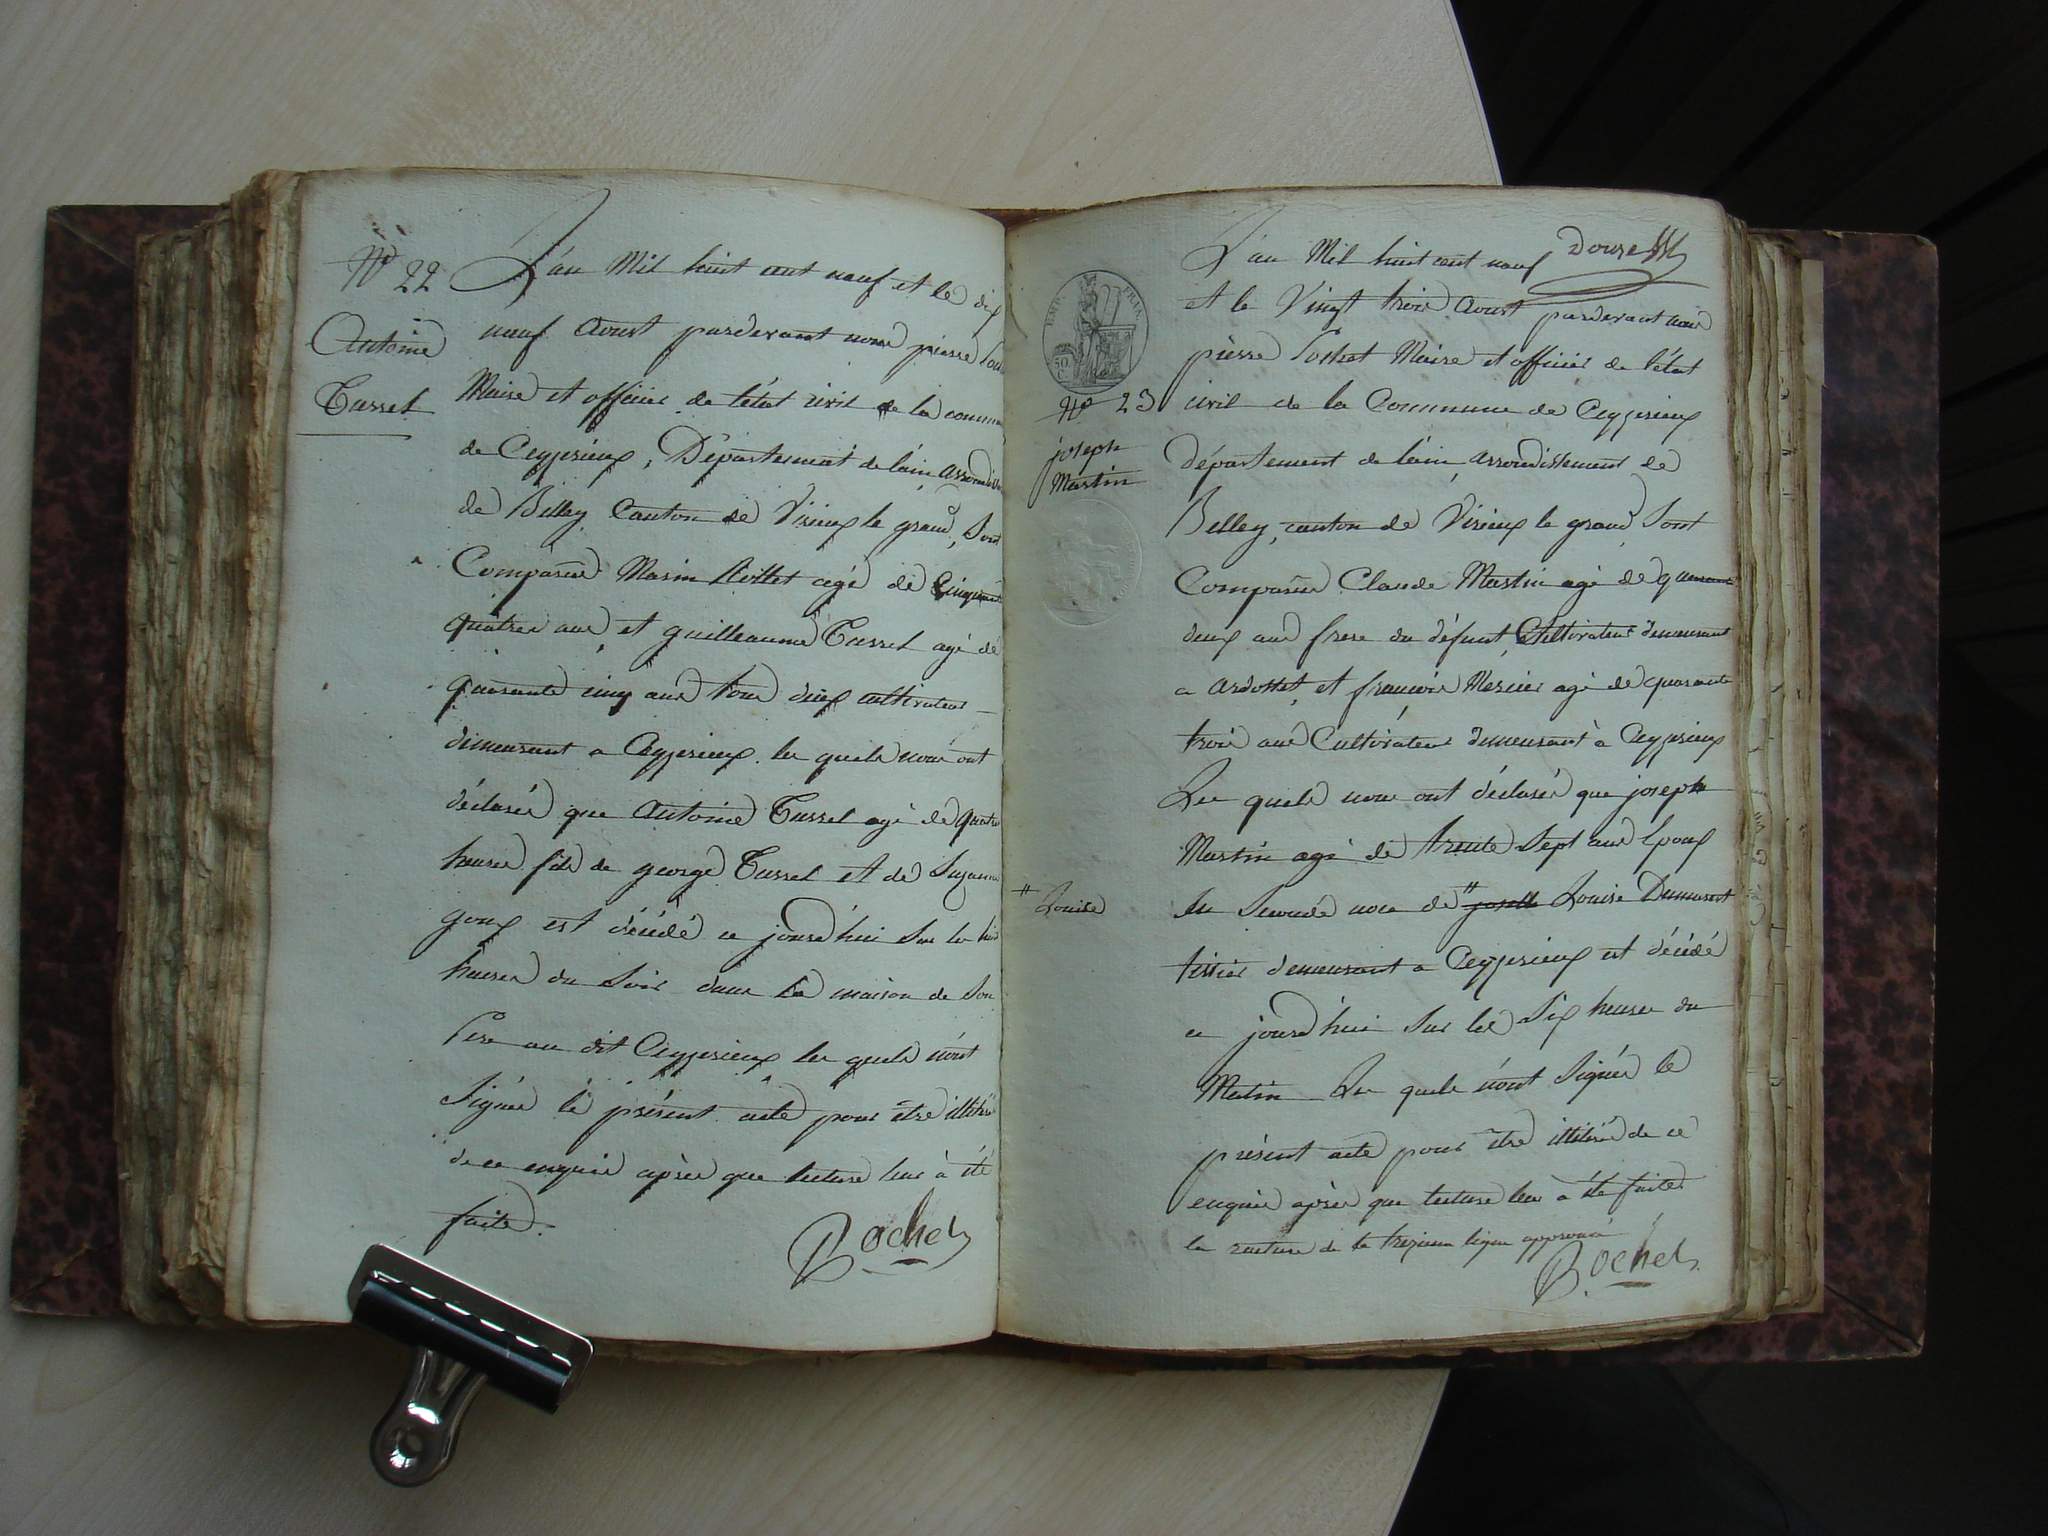 N° 22
Antoine
Tassel
L'an Mil huit cent neuf et le dix
neuf Aoust pardevant nous pierre
Maire et officier de l'état civil de la commune
de Ceyzerieux, Département de l'ain arrondis
de Belley Canton de Virieux le grand, Sont
Comparus Marin age de Cinquante
quatre ans et guilleaume Tassel agé de
quarante cinq ans tous deux cultivateurs
demeurant a Ceyzerieux. les quels nous ont
déclarés que Antoine Tassel agé de quatre
heures fils de george Tassel et de Suzanne
goux est décédé ce jourd'hui Sur les huit
heures du Soir dans la maison de Son
Pere au dit Ceyzerieux les quels n'ont
Signés le présent acte pour être illitéré
de ce enquis après que lecture leur à été
faite.
Bochet
Douze
EMP. FRAN.
50 C.
N° 23
joseph
Martin
L'an Mil huit cent neuf
et le Vingt trois Aoust pardevant nous
pierre Bochet Maire et officier de l'état
civil de la Commune de Ceyzerieux
département de l'ain, arrondissement de
Belley, canton de Virieux le grand, Sont
Comparus Claude Martin agé de quarante
deux ans frere du défunt, Cultivateur demeurant
a ardosset, et francois Mercier agé de quarante
trois ans Cultivateur demeurant à Ceyzerieux
Les quels nous ont déclarés que joseph
Martin agé de trente Sept ans Epoux
en Seconde noce de # Louise Dumarest
# Louise
tissier demeurant a Ceyzerieux est décédé
ce jourd'hui Sur les Six heures du
Matin Les quels n'ont Signés le
présent acte pour être illitéré de ce
enquis après que lecture leur à été faite
la rature de la treizieme ligne approuvé
Bochet